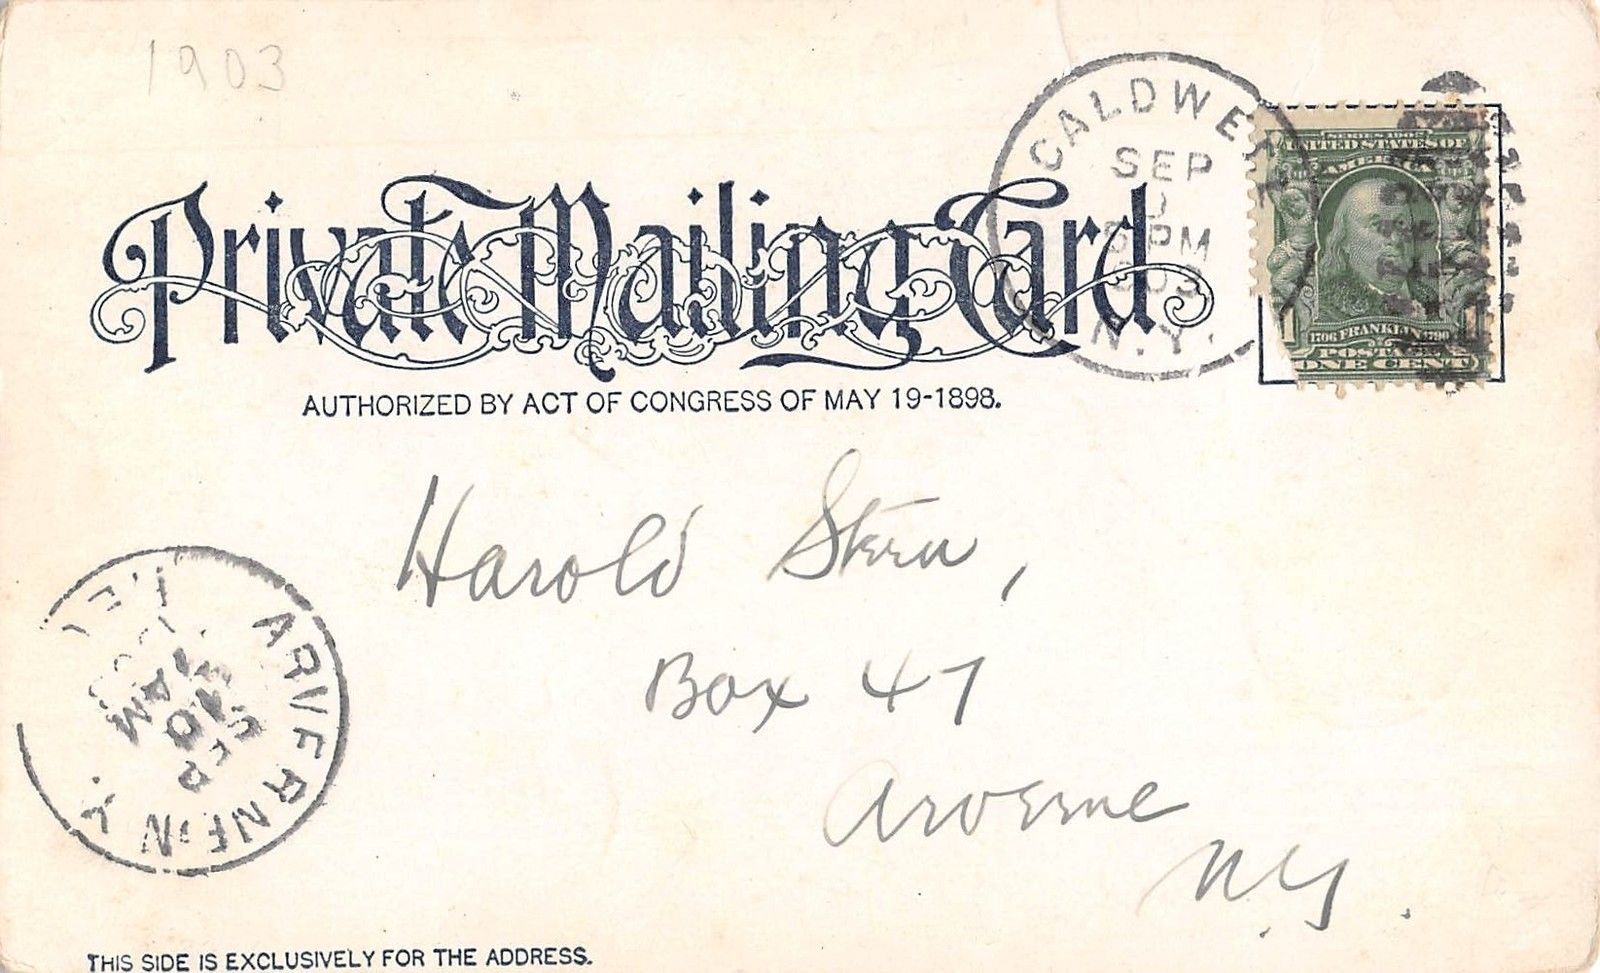 1903
CALDWELL
SEP
PM
903
N.Y.
SERIES 1902
UNITED STATES OF
AMERICA
1706 FRANKLIN 1790
POSTAGE
ONE CENT
Private Mailing Card
AUTHORIZED BY ACT OF CONGRESS OF MAY 19-1898.
Harold Stern,
Box 47
Arverne
N.Y.
ARVERNE N.Y.
SEP
10
AM
REC'D
THIS SIDE IS EXCLUSIVELY FOR THE ADDRESS.